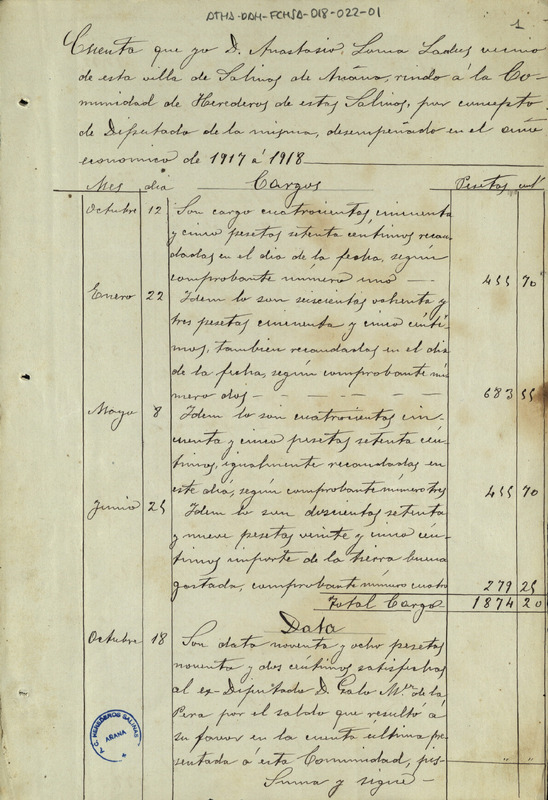 ATHA-DAH-FCHSA-018-022-01
1
Cuenta que yo D. Anastasio Loma Ladues vecino
de esta villa de Salinas de Añana, rindo á la Co-
munidad de Herederos de estas Salinas, por concepto
de Diputado de la misma, desempeñado en el año
economico de 1917 á 1918
Mes dia Cargos Pesetas cént.
Octubre 12 Son cargo cuatrocientas cincuenta
y cinco pesetas setenta céntimos recau-
dadas en el dia de la fecha, según
comprobante número uno — 455 70
Enero 22 Idem lo son seiscientas ochenta y
tres pesetas cincuenta y cinco cénti-
mos, tambien recaudadas en el dia
de la fecha, según comprobante nú-
mero dos - - - - - 683 55
Mayo 8 Idem lo son cuatrocientas cin-
cuenta y cinco pesetas setenta cén-
timos, igualmente recaudadas en
este dia, según comprobante número tres 455 70
Junio 25 Idem lo son doscientas setenta
y nueve pesetas veinte y cinco cén-
timos importe de la tierra buena
gastada, comprobante número cuatro 279 25
Total Cargo 1874 20
Data
Octubre 18 Son data noventa y ocho pesetas
noventa y dos céntimos satisfechas
al ex-Diputado D. Galo Mª de la
Pera por el saldo que resultó á
su favor en la cuenta última pre-
sentada á esta Comunidad, pes- " "
Suma y sigue —
T.C. HEREDEROS SALINAS
AÑANA